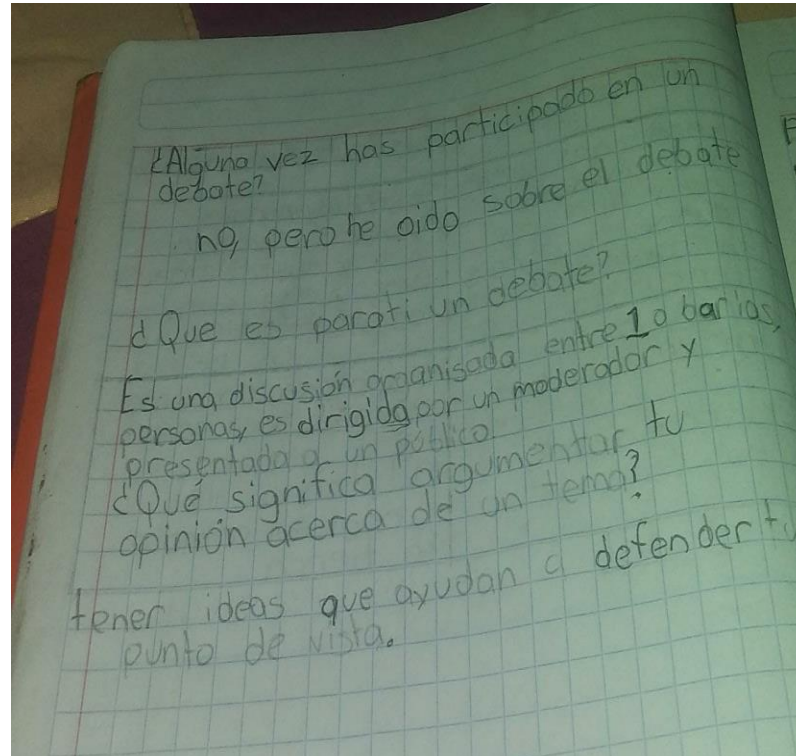 ¿Alguna vez has participado en un
debate?
no, pero he oido sobre el debate
¿Que es para ti un debate?
Es una discusión organisada entre 1 o barias,
personas, es dirigida por un moderador y
presentada a un público
¿Qué significa argumentar tu
opinión acerca de un tema?
tener ideas que ayudan a defender tu
punto de vista.